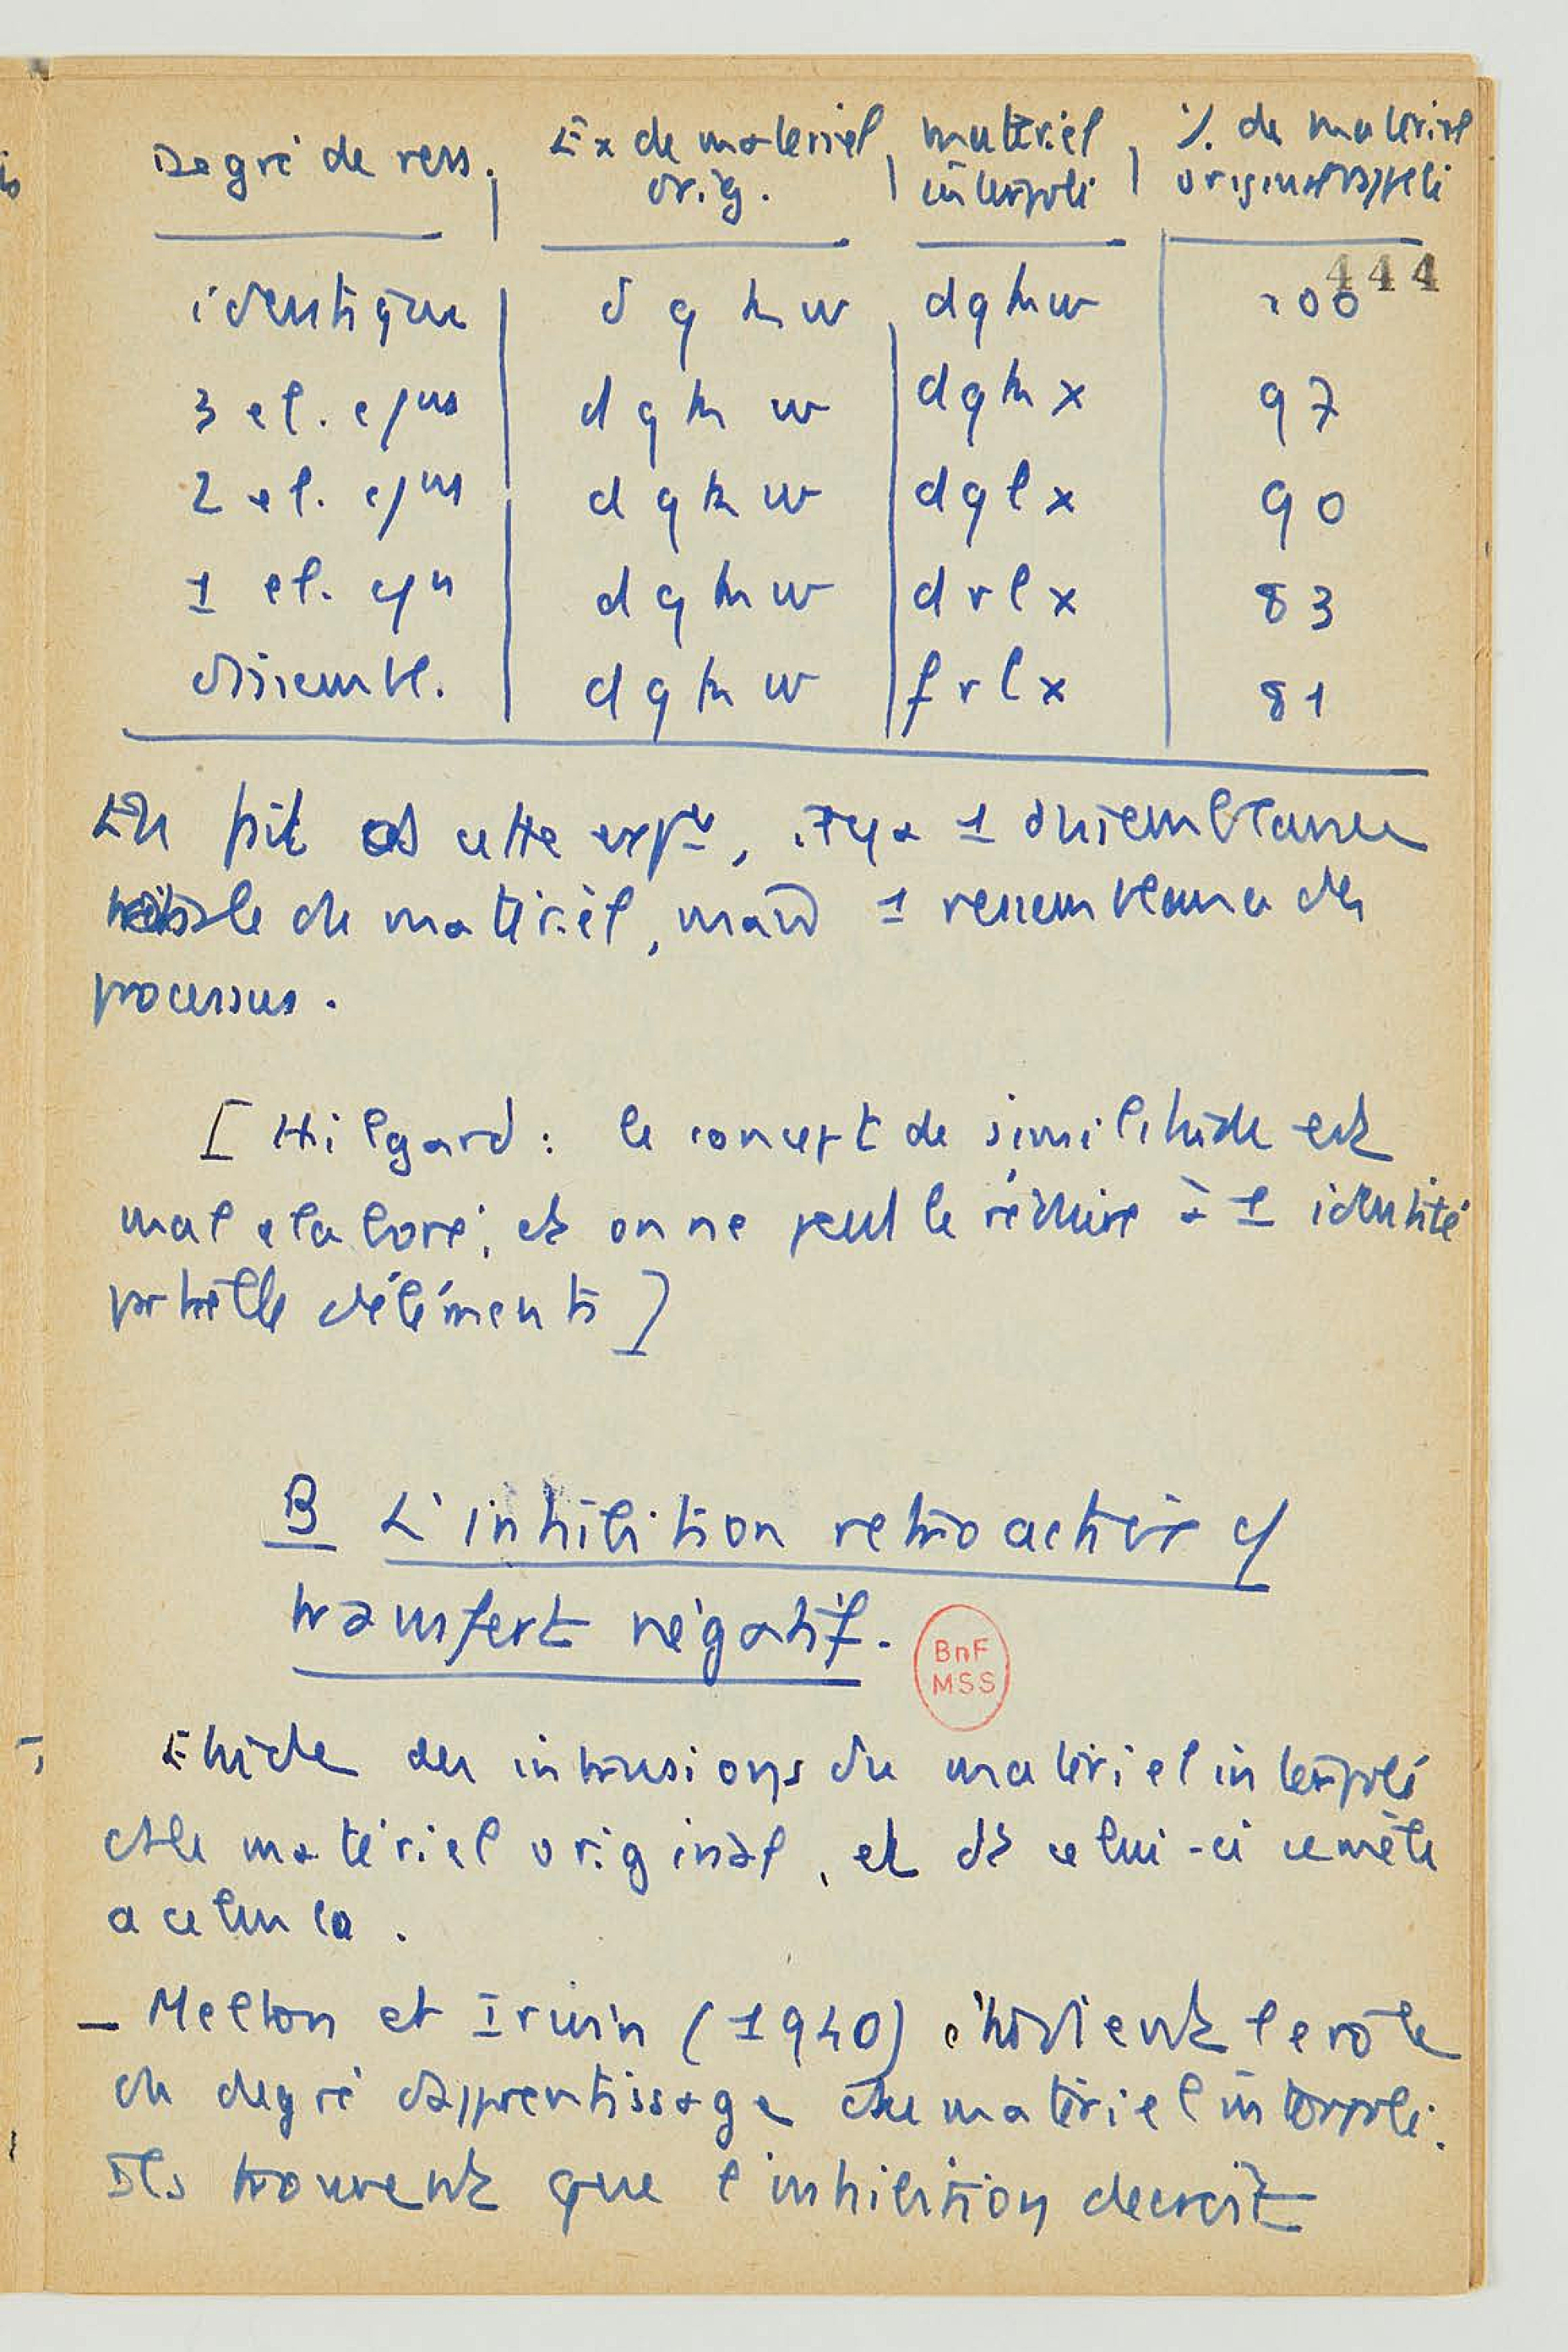 Degré de ress. | Ex de materiel orig. | matériel interpolé | % de matériel original rappelé
444
identique | d q k w | d q k w | 100
3 el. cjns | d q k w | d q k x | 97
2 el. cjns | d q k w | d q l x | 90
1 el. cjn | d q k w | d r l x | 83
dissembl. | d q k w | f r l x | 81
En fait ds cette expce, il y a 1 dissemblance
de matériel, mais 1 ressemblance des
processus.
[Hilgard : le concept de similitude est
mal elaboré ; et on ne peut le réduire à 1 identité
partielle d'éléments]
B L'inhibition retroactive c/
transfert négatif.
BnF
MSS
Etude des intrusions du matériel interpolé
ds le matériel original, et ds celui-ci
a celui là.
– Melton et Irwin (1940) étudient le rôle
du degré d'apprentissage du matériel interpolé.
Ils trouvent que l'inhibition decroît